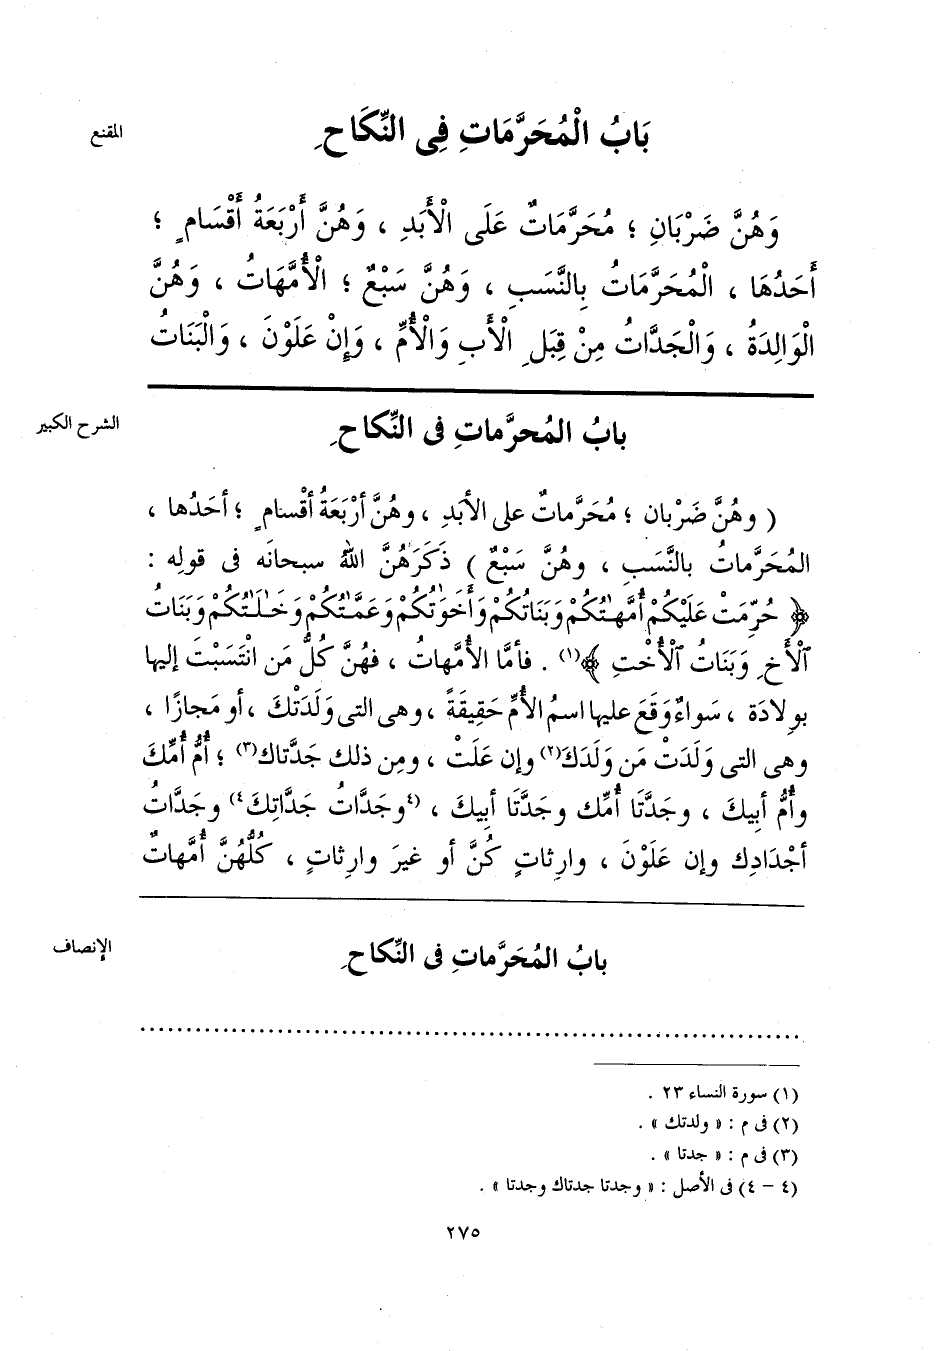 المقنع
بَابُ الْمُحَرَّمَاتِ فِى النِّكَاحِ
وَهُنَّ ضَرْبَانِ ؛ مُحَرَّمَاتٌ عَلَى الْأَبَدِ ، وَهُنَّ أَرْبَعَةُ أَقْسَامٍ ؛
أَحَدُهَا ، الْمُحَرَّمَاتُ بِالنَّسَبِ ، وَهُنَّ سَبْعٌ ؛ الْأُمَّهَاتُ ، وَهُنَّ
الْوَالِدَةُ ، وَالْجَدَّاتُ مِنْ قِبَلِ الْأَبِ وَالْأُمِّ ، وَإِنْ عَلَوْنَ ، وَالْبَنَاتُ
الشرح الكبير
بابُ المُحرَّماتِ فى النِّكاحِ
( وهُنَّ ضَرْبان ؛ مُحَرَّماتٌ على الأبَدِ ، وهُنَّ أرْبَعَةُ أقْسامٍ ؛ أحَدُها ،
المُحَرَّماتُ بالنَّسَبِ ، وهُنَّ سَبْعٌ ) ذَكَرَهُنَّ اللهُ سبحانَه فى قولِه :
﴿ حُرِّمَتْ عَلَيْكُمْ أُمَّهَٰتُكُمْ وَبَنَاتُكُمْ وَأَخَوَٰتُكُمْ وَعَمَّٰتُكُمْ وَخَٰلَٰتُكُمْ وَبَنَاتُ
ٱلْأَخِ وَبَنَاتُ ٱلْأُخْتِ ﴾(١) . فأمَّا الأُمَّهاتُ ، فهُنَّ كُلُّ مَن انْتَسَبْتَ إليها
بوِلادَة ، سَواءٌ وَقَعَ عليها اسمُ الأُمِّ حَقِيقَةً ، وهى التى وَلَدَتْكَ ، أو مَجازًا ،
وهى التى وَلَدَتْ مَن وَلَدَكَ(٢) وإن عَلَتْ ، ومِن ذلك جَدَّتاك(٣) ؛ أُمُّ أُمِّكَ
وأُمُّ أبِيكَ ، وجَدَّتَا أُمِّك وجَدَّتَا أبِيكَ ، (٤وجَدَّاتُ جَدَّاتِكَ٤) وجَدَّاتُ
أجْدَادِك وإن عَلَوْنَ ، وارِثاتٍ كُنَّ أو غيرَ وارِثاتٍ ، كُلُّهُنَّ أُمَّهاتٌ
الإنصاف
بابُ المُحَرَّماتِ فى النِّكاحِ
................................................................
(١) سورة النساء ٢٣ .
(٢) فى م : « ولدتك » .
(٣) فى م : « جدتا » .
(٤ - ٤) فى الأصل : « وجدتا جدتاك وجدتا » .
٢٧٥